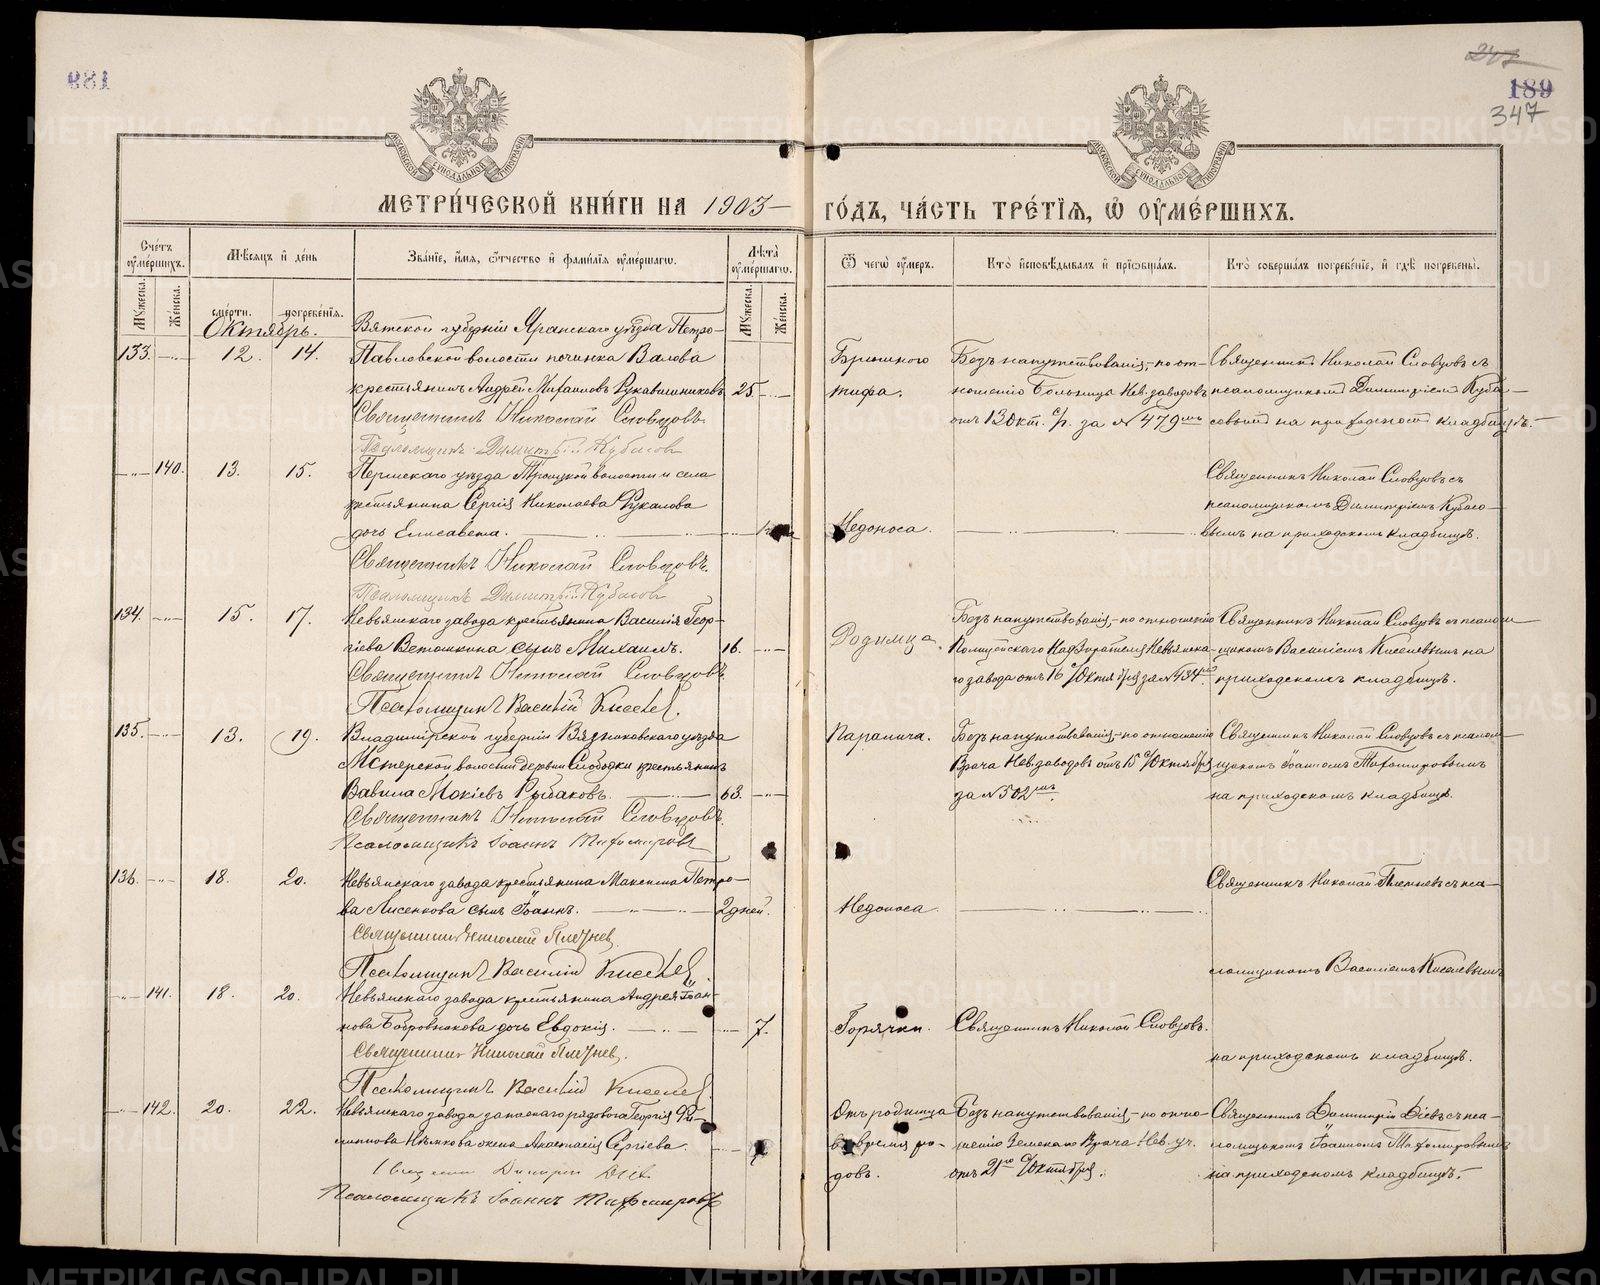 189
347
МЕТРИ́ЧЕСКОЙ КНИ́ГИ НА 1903 ГО́ДЪ, ЧА́СТЬ ТРЕ́ТІЯ, Ѿ ОУМЕ́РШИХЪ.
Сче́тъ оуме́ршихъ.
Мѣсяцъ и день
Зва́ніе, и́мя, ѻ́тчество и фамилія оуме́ршагѡ.
Лѣта оуме́ршагѡ.
Ѿ чегѡ̀ оу́меръ.
Кто̀ исповѣдывалъ и пріѡбща́лъ.
Кто̀ соверша́лъ погребе́ніе, и гдѣ̀ погребены̀.
Мꙋжеска.
Же́нска.
смерти.
погребе́нія.
Мꙋжеска.
Же́нска.
Октябрь.
Вятской губерніи Яранскаго уѣзда Петро-
133. 12. 14. Павловской волости починка Валова
крестьянинъ Андрей Михаиловъ Рукавишниковъ 25.
Священникъ Николай Словцовъ.
Псаломщикъ Димитрій Кубасов
Брюшного
тифа.
Безъ напутствованія, по от-
ношенію Больницы Нев. заводовъ
отъ 13 Окт. с/г. за № 479мъ
Священникъ Николай Словцовъ съ
псаломщикомъ Димитріемъ Куба-
совымъ на приходскомъ кладбищѣ.
140. 13. 15. Пермскаго уѣзда Троицкой волости и села
крестьянина Сергія Николаева Рукалова
дочь Елисавета.
Священникъ Николай Словцовъ.
Псаломщикъ Димитрій Кубасов
Недоноса.
Священникъ Николай Словцовъ съ
псаломщикомъ Димитріемъ Кубасо-
вымъ на приходскомъ кладбищѣ.
134. 15. 17. Невьянскаго завода крестьянина Василія Геор-
гіева Ветошкина сынъ Михаилъ. 16.
Священникъ Николай Словцовъ.
Псаломщикъ Василій Киселев.
Родимца.
Безъ напутствованія, по отношенію
Полицейскаго Надзирателя Невьянска-
го завода отъ 16 с/Октября за № 434
Священникъ Николай Словцовъ съ псалом-
щикомъ Василіемъ Киселевымъ на
приходскомъ кладбищѣ.
135. 13. 19. Владимірской губерніи Вязниковскаго уѣзда
Мстерской волости деревни Слободки крестьянинъ
Вавила Мокіевъ Рыбаковъ. 63.
Священникъ Николай Словцовъ.
Псаломщикъ Іоаннъ Тихомировъ
Паралича.
Безъ напутствованія, по отношенію
Врача Нев. заводовъ отъ 15 с/Октября
за № 502мъ
Священникъ Николай Словцовъ съ псалом-
щикомъ Іоанномъ Тихомировымъ
на приходскомъ кладбищѣ.
136. 18. 20. Невьянскаго завода крестьянина Максима Петро-
ва Лисенкова сынъ Іоаннъ. 2 дней.
Священникъ Николай Плетнев.
Псаломщикъ Василій Киселев.
Недоноса.
Священникъ Николай Плетневъ съ пса-
ломщикомъ Василіемъ Киселевымъ
141. 18. 20. Невьянскаго завода крестьянина Андрея Іоан-
нова Бобровникова дочь Евдокія. 7.
Священникъ Николай Плетнев.
Псаломщикъ Василій Киселев.
Горячки.
Священникъ Николай Словцовъ.
на приходскомъ кладбищѣ.
142. 20. 22. Невьянскаго завода запаснаго рядоваго Георгія Фи-
липпова жена Анастасія Сергіева.
Священник Димитрій Діев
Псаломщикъ Іоаннъ Тихомировъ
Отъ родимца
во время ро-
довъ.
Безъ напутствованія, по отно-
шенію Земскаго Врача Нев. уч.
отъ 21го с/Октября.
Священникъ Димитрій Діевъ съ пса-
ломщикомъ Іоанномъ Тихомировымъ
на приходскомъ кладбищѣ.
METRIKI.GASO-URAL.RU